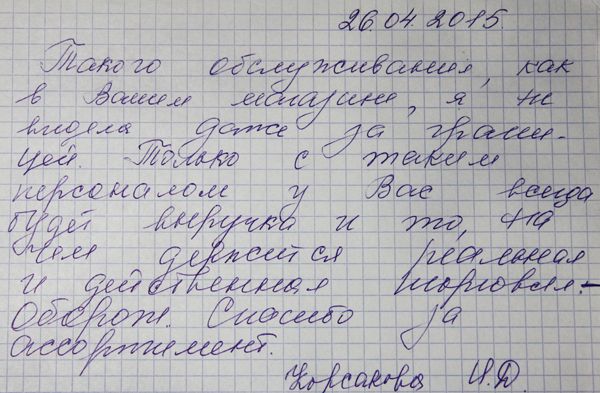 26.04.2015.
Такого обслуживания, как
в Вашем магазине, я не
видела даже за грани-
цей. Только с таким
персоналом у Вас всегда
будет выручка и то, на
чем держится реальная
и действенная торговля. -
Оборот. Спасибо за
ассортимент.
Корсакова И.Д.